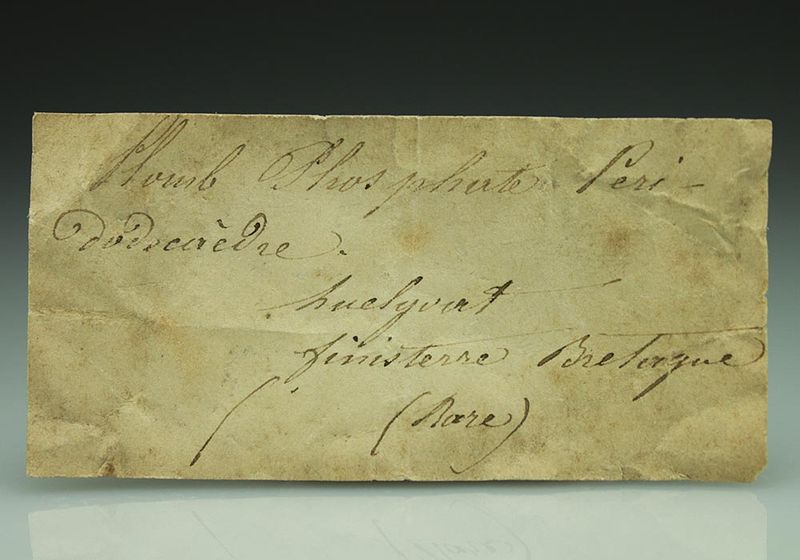 Plomb Phosphaté Peri-
dodecaèdre.
huelgoat
finisterre Bretagne
(Rare)